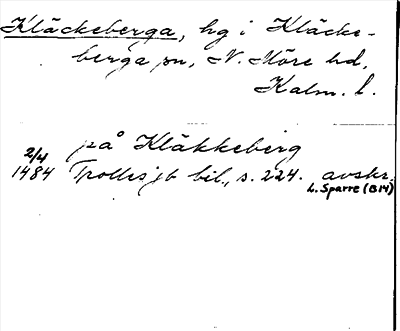 Kläckeberga, hg i Kläcke-
berga sn, N. Möre hd,
Kalm. l.
på Kläkkeberg
2/4
1484 Trolles jb bil., s. 224. avskr.
L. Sparre (BM)